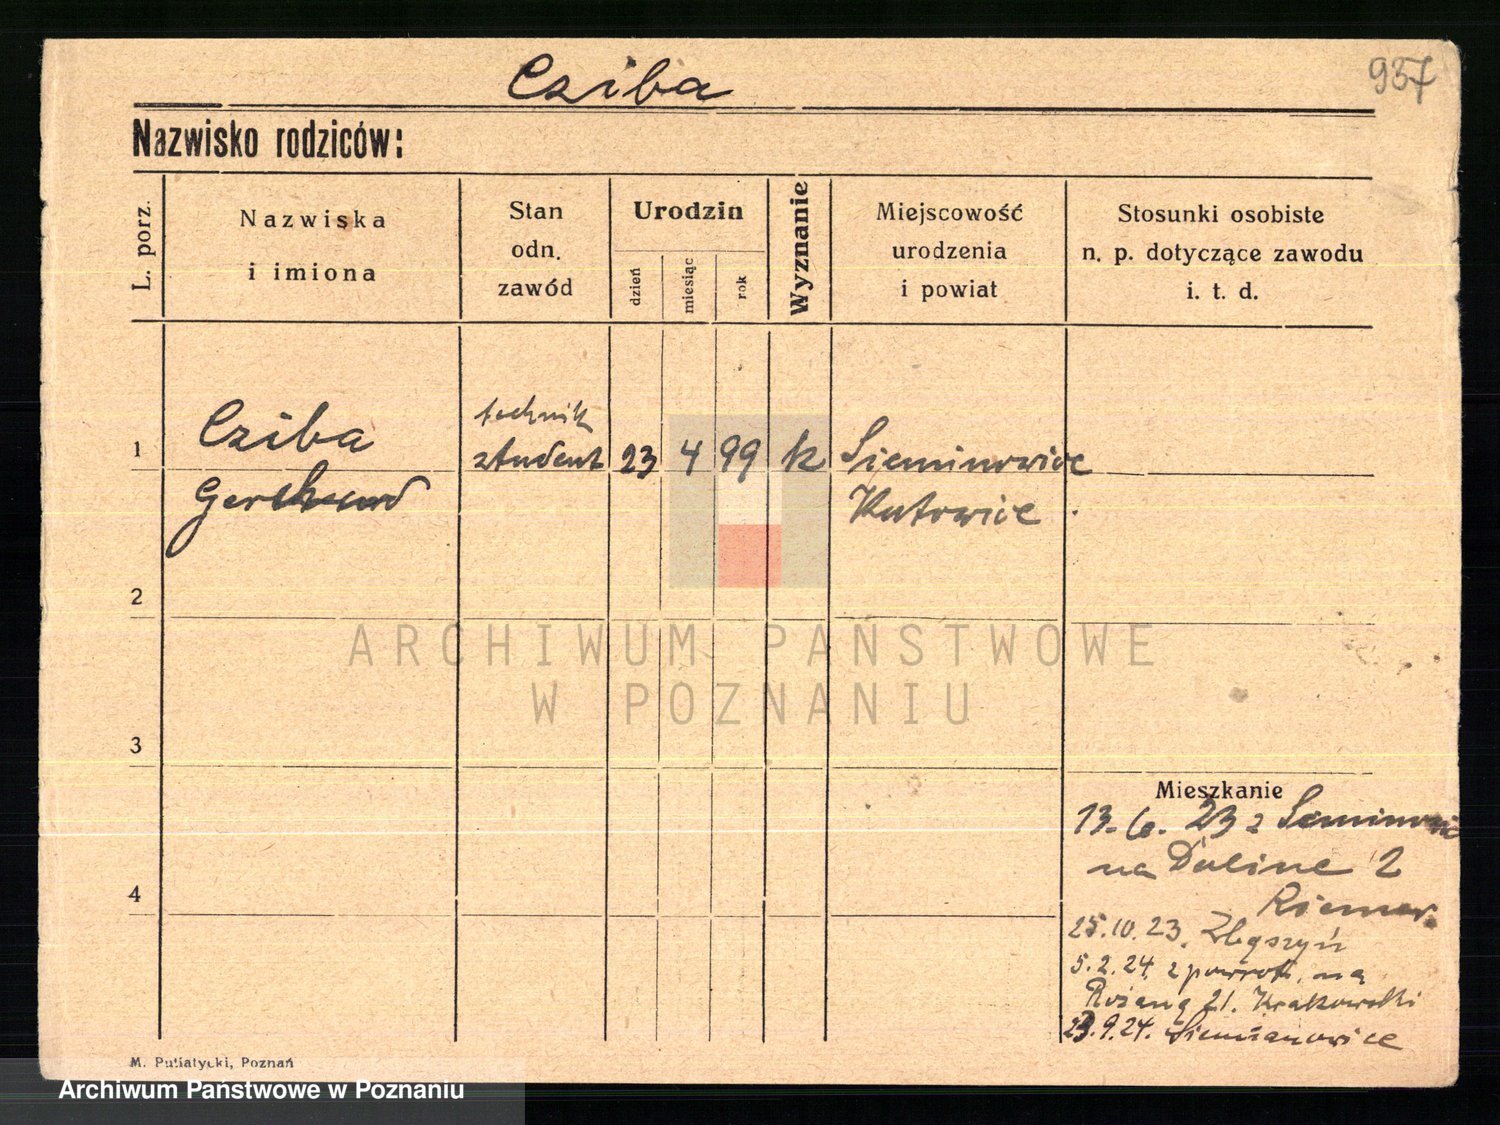 Cziba
937
Nazwisko rodziców:
L. porz.
Nazwiska
i imiona
Stan
odn.
zawód
Urodzin
dzień
miesiąc
rok
Wyznanie
Miejscowość
urodzenia
i powiat
Stosunki osobiste
n. p. dotyczące zawodu
i. t. d.
1
Cziba
Gerhard
technik
student
23
4
99
k
Sieminowice
Katowice
2
3
4
ARCHIWUM PAŃSTWOWE
W POZNANIU
Mieszkanie
13. 6. 23 z
na Doline 2
25.10.23. Zbąszyń
5.2.24. z powrot. na
Różaną 21. Krakowski
23.9.24. Siemianowice
M. Putiatycki, Poznań
Archiwum Państwowe w Poznaniu